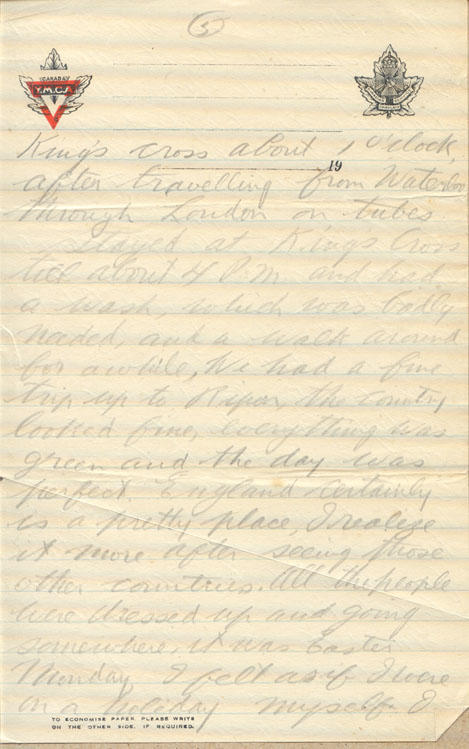 5
CANADA
Y.M.C.A.
King's cross about 1 O'clock,
19
after travelling from Waterloo
through London on tubes
stayed at King's Cross
till about 4 P.M. and had
a wash, which was badly
needed, and a walk around
for awhile, We had a fine
trip up to Ripon, the country
looked fine, everything was
green and the day was
perfect. England certainly
is a pretty place, I realize
it more after seeing those
other countries. All the people
were dressed up and going
somewhere, it was Easter
Monday I felt as if I were
on a holiday myself. I
TO ECONOMISE PAPER, PLEASE WRITE
ON THE OTHER SIDE, IF REQUIRED.